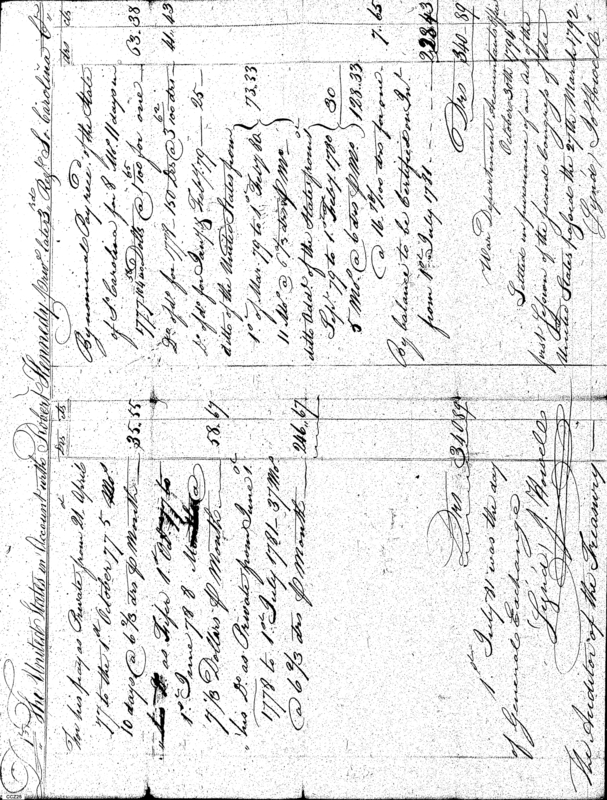 Dr The United States in Account with Robert Kennedy Priv. late 3rd Regt So. Carolina Cr
Drs cts
To his pay as Private from 21 April
77 to the 1st October 77 5 Mos.
10 days @ 6 2/3 drs P Month 35.55
his Do as Fifer 1st Oct 77 to
1st June 78 8 Months @
7 1/3 Dollars P Month 58.67
his Do as Private from June 1st
1778 to 1st July 1781 37 Mos
@ 6 2/3 drs P Month 246.67
Drs 340 89
1st July 81 was the day
of General Exchange
Signd J. Howell
The Auditor of the Treasury
Drs cts
By nominal Pay rece. of the State
of So Carolina for 8 Mos 11 days in
1777 @ 100 for one 63.38
Do of do for 1779 150 Drs @ 100 drs 41.43
Do of do for Jany & Feby 79 25
ditto of the United States from
1st of Mar 79 to 1st Feby 80
11 Mos @ 6 2/3 drs P Mo 73.33
ditto Addl. of the States from
Sept 79 to 1st Feby 1780
5 Mos @ 6 drs P Mo 30
128.33
@ for one 7.65
By balance to be Certified on Int.
from 1st July 1781 228.43
Drs 340.89
War Department Accountants Office
October 30th 1794
Settled in pursuance of an Act of the
first Session of the second Congress of the
United States passed the 27th March 1792
Signd Jo Howell
CC228